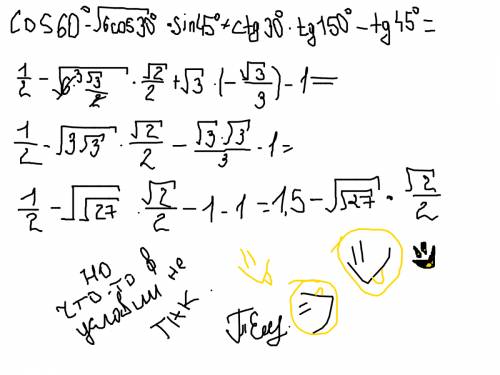 cos60° - √6cos30° · sin45° + ctg30° · tg150° - tg45° =
1/2 - √(6³ √3/2) · √2/2 + √3 · (-√3/3) - 1 =
1/2 - √(3√3) · √2/2 - (√3·√3)/3 - 1 =
1/2 - √√27 · √2/2 - 1 - 1 = 1,5 - √√27 · √2/2
НО
что-то в
условии не
так.